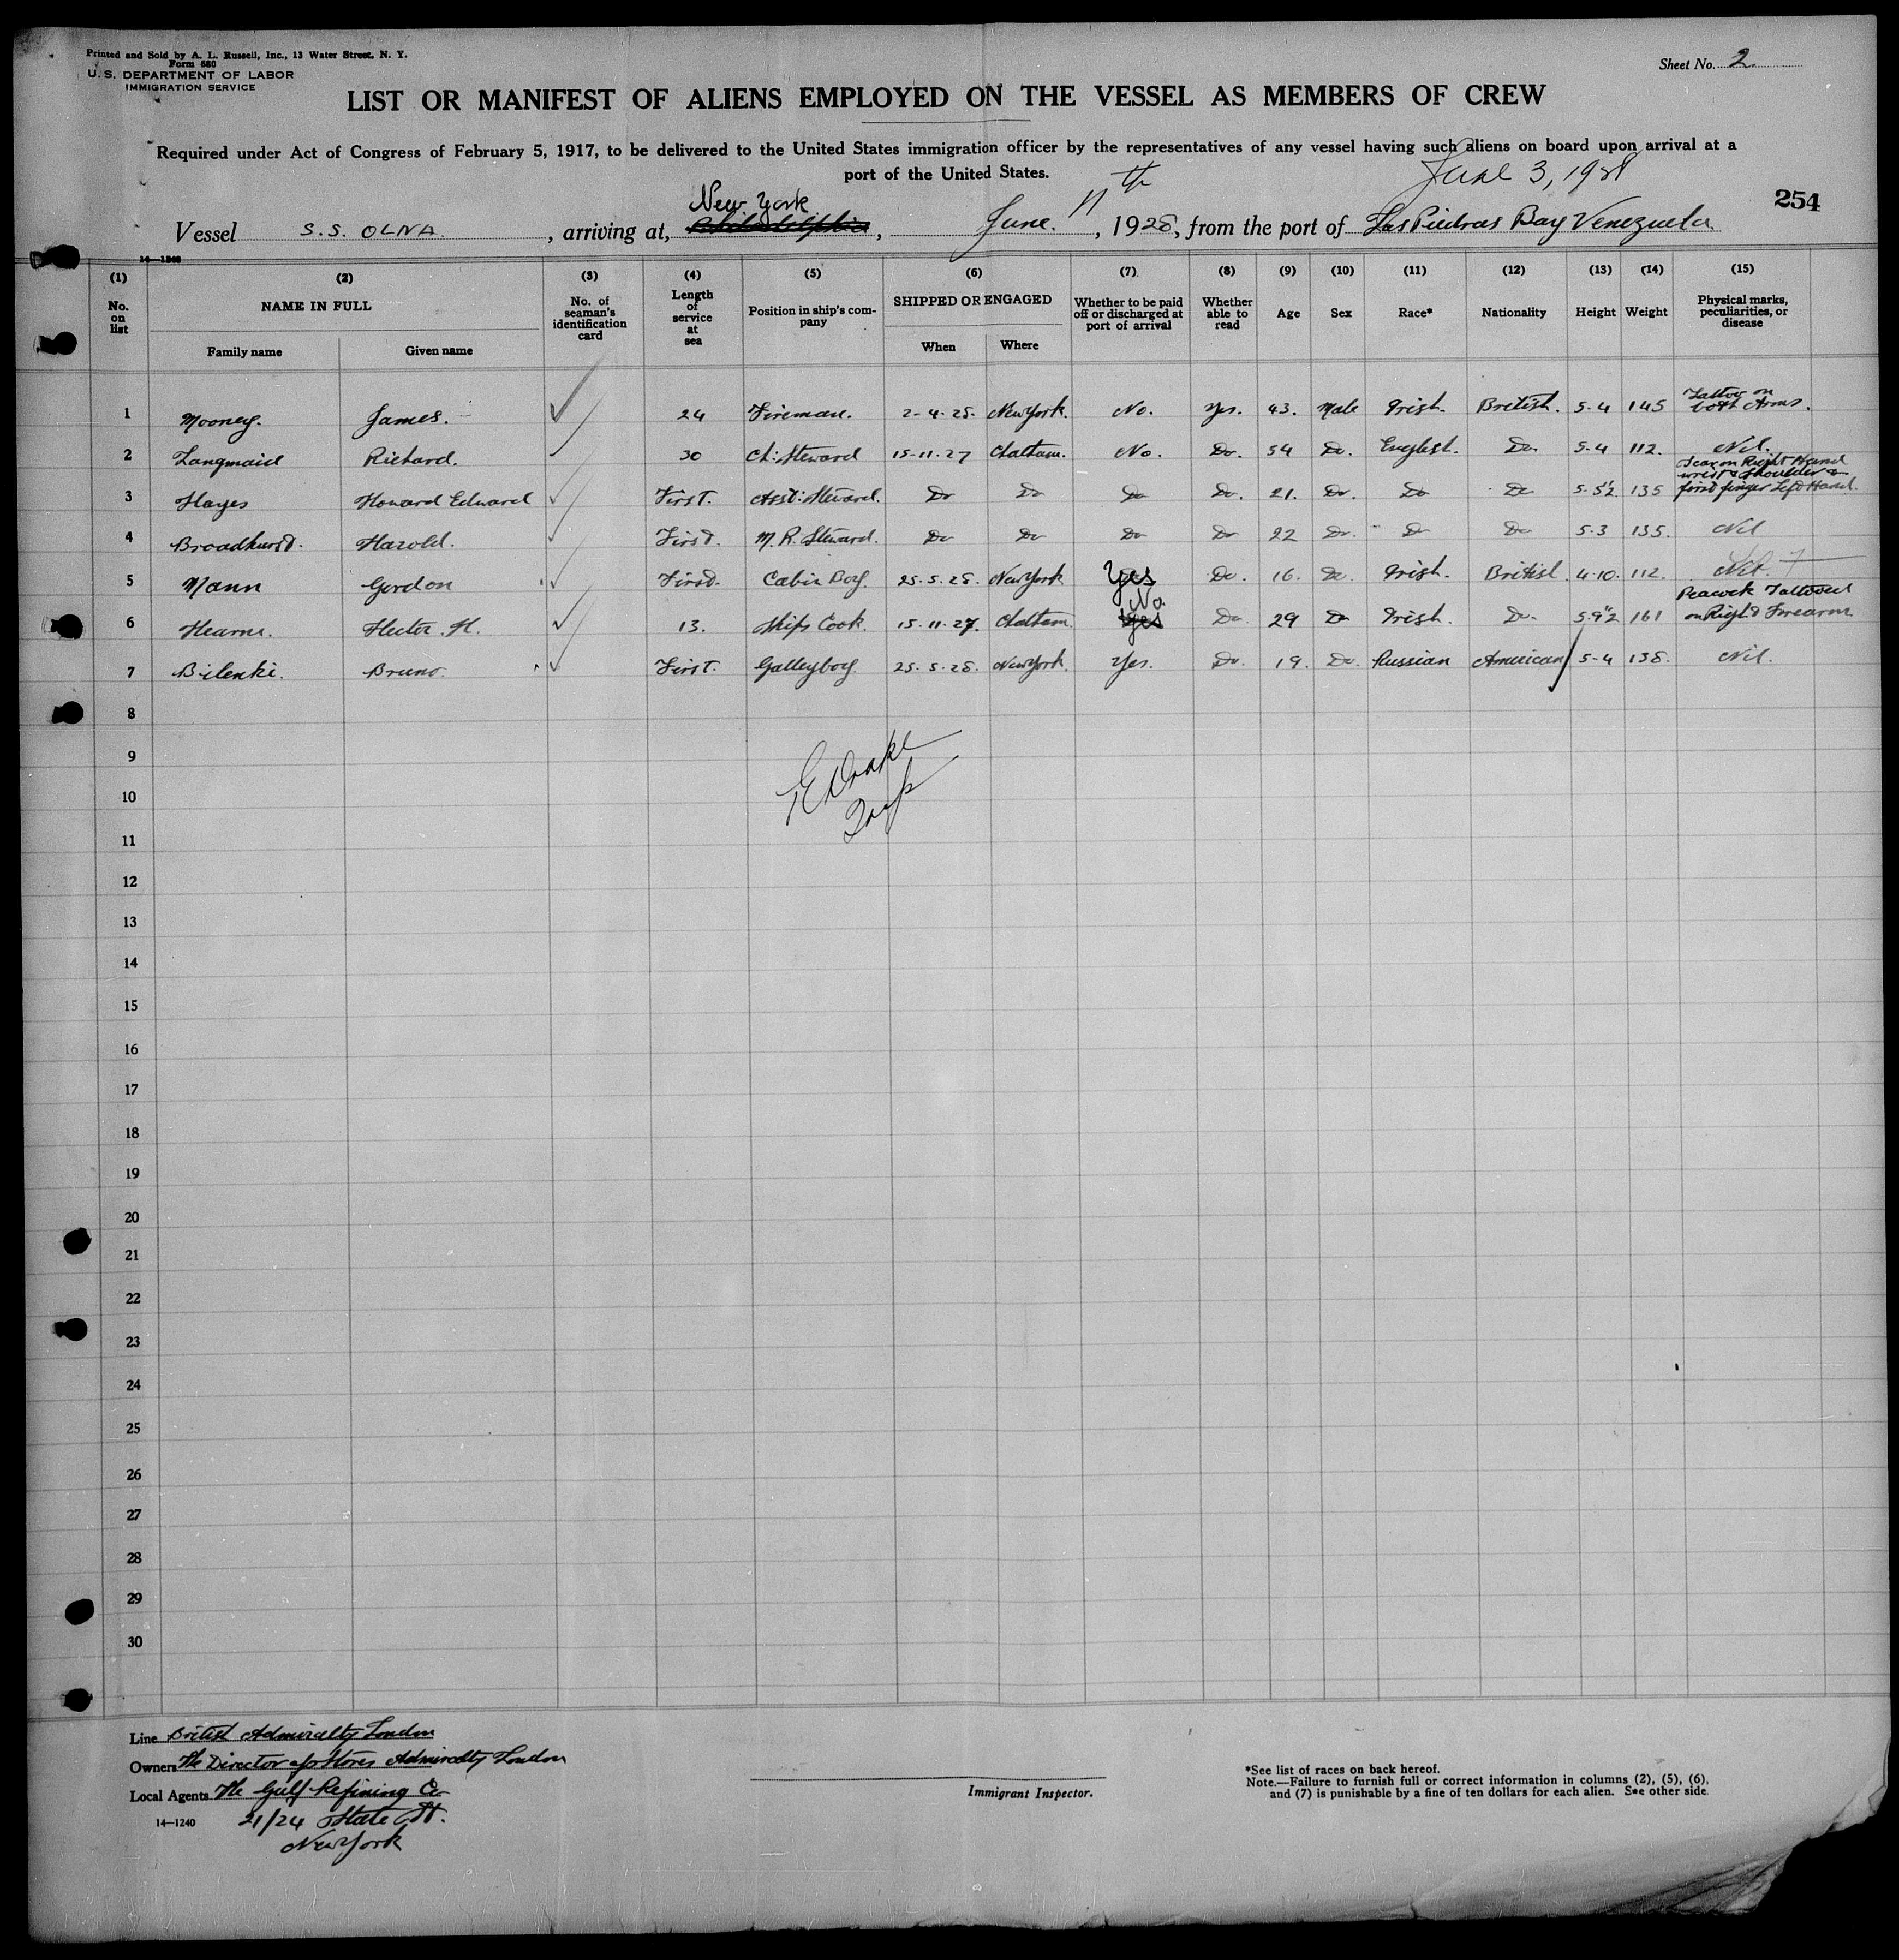 Printed and Sold by A. L. Russell, Inc., 13 Water Street, N. Y.
Form 680
U. S. DEPARTMENT OF LABOR
IMMIGRATION SERVICE
Sheet No. 2
LIST OR MANIFEST OF ALIENS EMPLOYED ON THE VESSEL AS MEMBERS OF CREW
Required under Act of Congress of February 5, 1917, to be delivered to the United States immigration officer by the representatives of any vessel having such aliens on board upon arrival at a
port of the United States.
June 3, 1928
254
New York
Vessel S.S. OLNA, arriving at, Philadelphia, June 11th, 1928, from the port of Las Piedras Bay Venezuela
(1) (2) (3) (4) (5) (6) (7) (8) (9) (10) (11) (12) (13) (14) (15)
No. on list NAME IN FULL No. of seaman's identification card Length of service at sea Position in ship's company SHIPPED OR ENGAGED Whether to be paid off or discharged at port of arrival Whether able to read Age Sex Race* Nationality Height Weight Physical marks, peculiarities, or disease
Family name Given name When Where
1 Mooney. James. 24 Fireman. 2-4-28. New York. No. Yes. 43. Male Irish. British. 5-4 145 Tattoo on both Arms.
2 Langmaid Richard. 30 Ch: Steward 15-11-27 Chatham. No. Do. 54 Do. English. Do 5-4 112. Nil.
3 Hayes Howard Edward First. Asst: Steward. Do Do Do Do. 21. Do. Do Do 5-5½ 135 Scar on Right Hand wrist & shoulder & first finger Left Hand.
4 Broadhurst. Harold. First. M. R. Steward. Do Do Do Do 22 Do. Do Do 5-3 135. Nil
5 Mann Gordon First. Cabin Boy. 25-5-28. New York Yes Do. 16. Do Irish. British. 4-10. 112. Nil.
6 Hearne. Hector. H. 13. Ships Cook. 15-11-27. Chatham. Yes No. Do. 29 Do Irish. Do. 5-9½ 161 Peacock Tattooed on Right Forearm
7 Bilenki. Bruno. First. Galleyboy. 25-5-28. New York. Yes. Do. 19. Do. Russian American 5-4 138. Nil.
8
9
10
11
12
13
14
15
16
17
18
19
20
21
22
23
24
25
26
27
28
29
30
Line British Admiralty London
Owners The Director of Stores Admiralty London
Local Agents The Gulf Refining Co
14—1240 21/24 State St.
New York
Immigrant Inspector.
*See list of races on back hereof.
Note.—Failure to furnish full or correct information in columns (2), (5), (6),
and (7) is punishable by a fine of ten dollars for each alien. See other side.